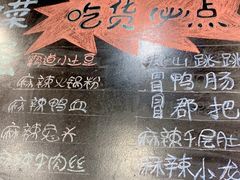 菜 吃货必点
小土豆
麻辣火锅粉
麻辣鸭血
麻辣兔头
牛肉丝
山跳跳
冒鸭肠
冒郡把
麻辣千层肚
麻辣小龙